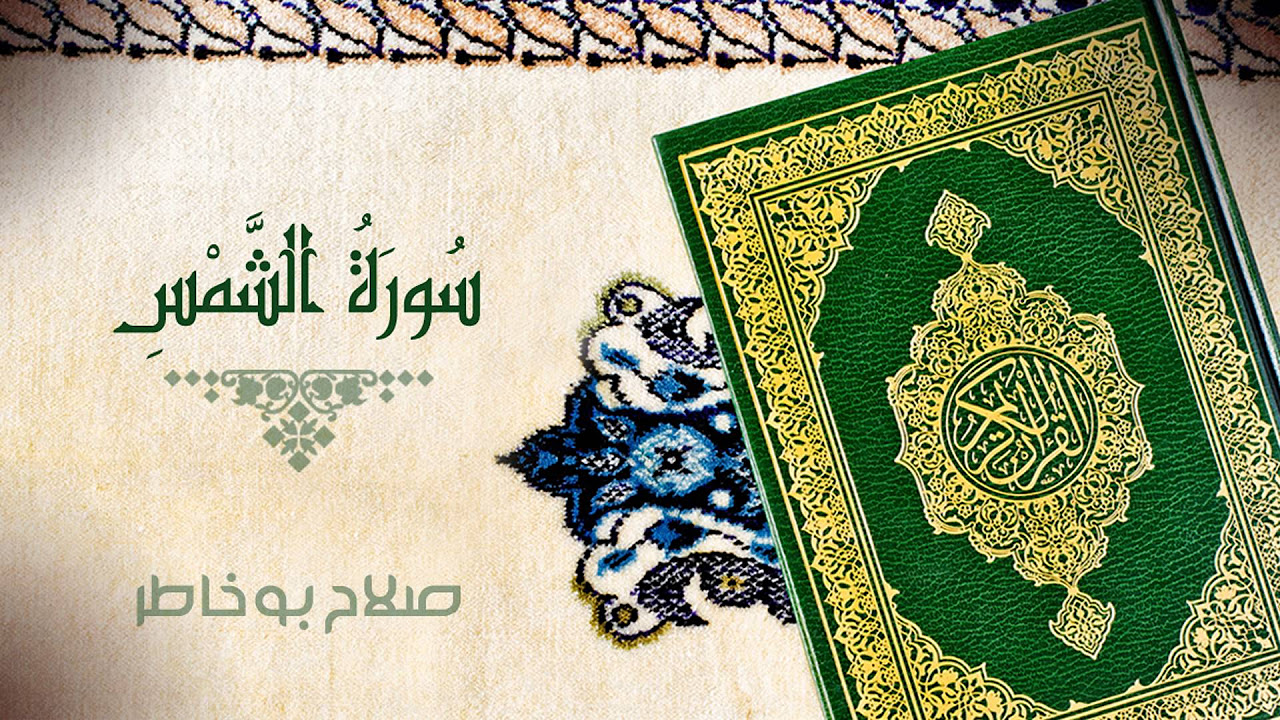 سُورَةُ الشَّمْسِ
صلاح بو خاطر
القرآن الكريم